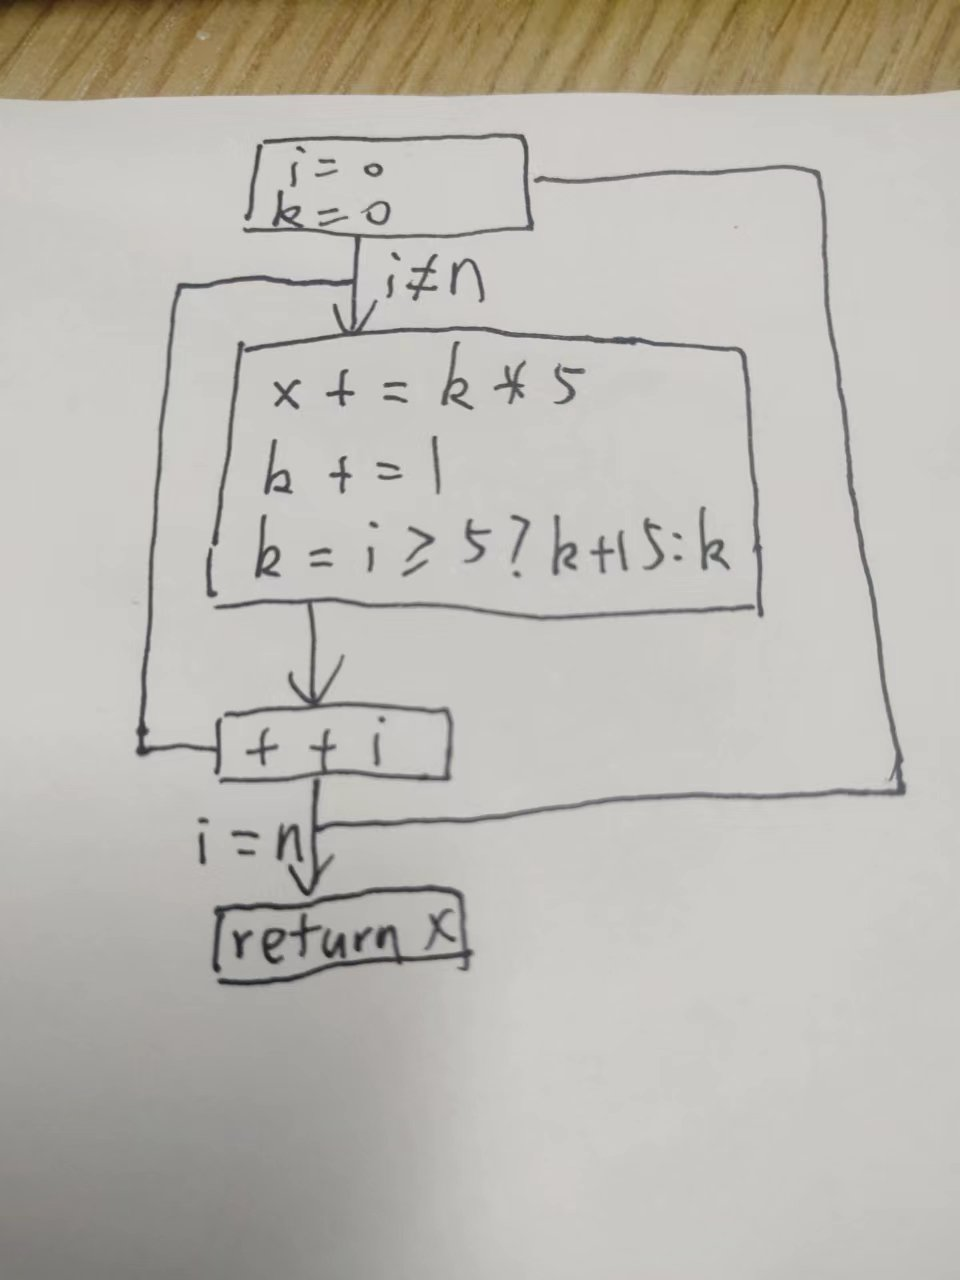 i = 0
k = 0
i ≠ n
x + = k * 5
k + = 1
k = i ≥ 5 ? k+15 : k
+ + i
i = n
return x